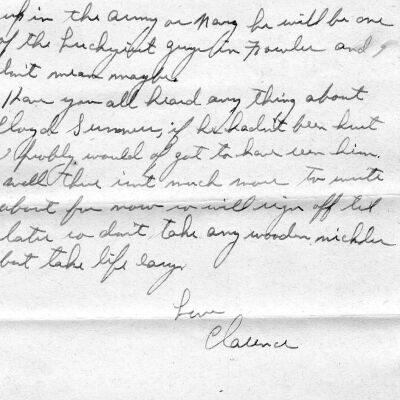 up in the Army or Navy he will be one
of the luckyiest guys in Fowler and I
don't mean maybe.
Have you all heard any thing about
Lloyd Summers, if he hadn't been hurt
I probly would of got to have seen him.
Well there isn't much more to write
about for now so will sign off til
later so don't take any wooden nickles
but take life easy.
Love
Clarence